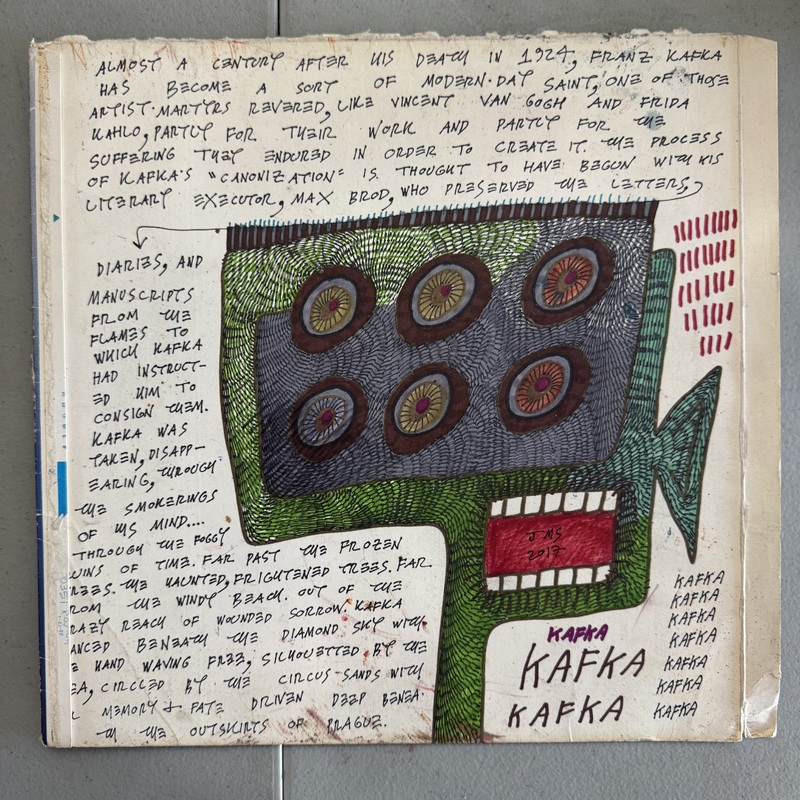 ALMOST A CENTURY AFTER HIS DEATH IN 1924, FRANZ KAFKA
HAS BECOME A SORT OF MODERN-DAY SAINT, ONE OF THOSE
ARTIST-MARTYRS REVERED, LIKE VINCENT VAN GOGH AND FRIDA
KAHLO, PARTLY FOR THEIR WORK AND PARTLY FOR THE
SUFFERING THEY ENDURED IN ORDER TO CREATE IT. THE PROCESS
OF KAFKA'S "CANONIZATION" IS THOUGHT TO HAVE BEGUN WITH HIS
LITERARY EXECUTOR, MAX BROD, WHO PRESERVED THE LETTERS,
DIARIES, AND
MANUSCRIPTS
FROM THE
FLAMES TO
WHICH KAFKA
HAD INSTRUCT-
ED HIM TO
CONSIGN THEM.
KAFKA WAS
TAKEN, DISAPP-
EARING, THROUGH
THE SMOKERINGS
OF HIS MIND....
THROUGH THE FOGGY
UINS OF TIME. FAR PAST THE FROZEN
REES. THE HAUNTED, FRIGHTENED TREES. FAR
ROM THE WINDY BEACH. OUT OF THE
RAZY REACH OF WOUNDED SORROW. KAFKA
ANCED BENEATH THE DIAMOND SKY WITH
E HAND WAVING FREE, SILHOUETTED BY THE
EA, CIRCLED BY THE CIRCUS-SANDS WITH
L MEMORY + FATE DRIVEN DEEP BENEA-
TH THE OUTSKIRTS OF PRAGUE.
JMS
2017
KAFKA
KAFKA
KAFKA
KAFKA
KAFKA
KAFKA
KAFKA
KAFKA
KAFKA
KAFKA